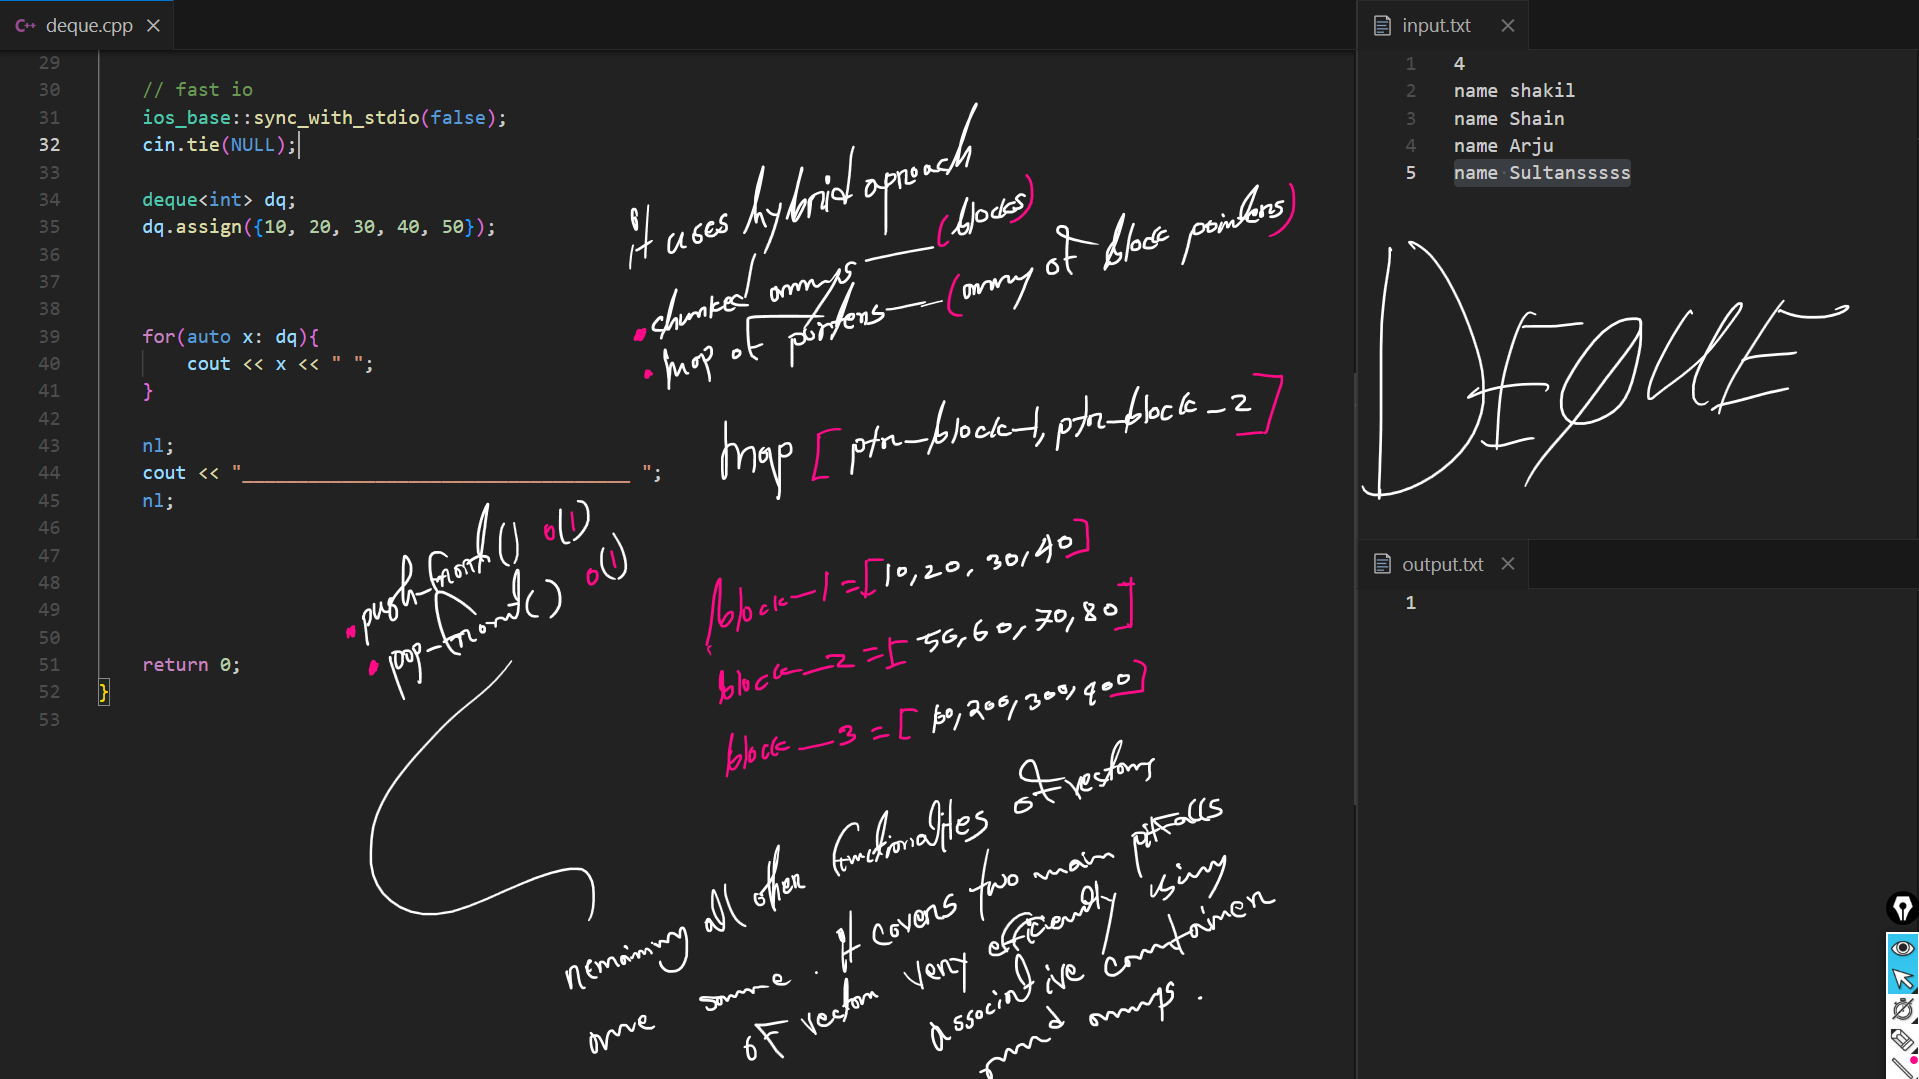 deque.cpp
29
30 // fast io
31 ios_base::sync_with_stdio(false);
32 cin.tie(NULL);
33
34 deque<int> dq;
35 dq.assign({10, 20, 30, 40, 50});
36
37
38
39 for(auto x: dq){
40 cout << x << " ";
41 }
42
43 nl;
44 cout << "___________________________________ ";
45 nl;
46
47
48
49
50
51 return 0;
52 }
53
it uses hybrid aproach
• chunked arrays — (blocks)
• map of pointers — (array of block pointers)
map [ptr-block-1, ptr-block-2]
• push-front() o(1)
• pop-front() o(1)
block-1 = [10, 20, 30, 40]
block-2 = [50, 60, 70, 80]
block-3 = [ 200, 300, 400]
remaining all other functionalities of vectors
are same . it covers two main pitfalls
of vector very efficiently using
associative container
and arrays .
input.txt
1 4
2 name shakil
3 name Shain
4 name Arju
5 name Sultansssss
DEQUE
output.txt
1